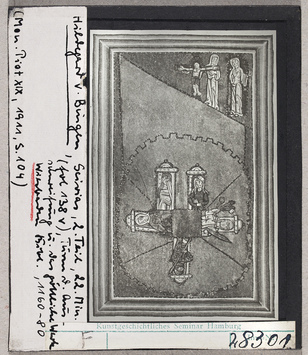 Hildegard v. Bingen, Scivias, 2. Teil 22 Min.
(fol. 138 v), Turm d. Aus-
u. der göttliche
Wiesbaden Bibl., 1160-80
(Mon. Piot XIX, 1911, S. 104)
Kunstgeschichtliches Seminar Hamburg
28301